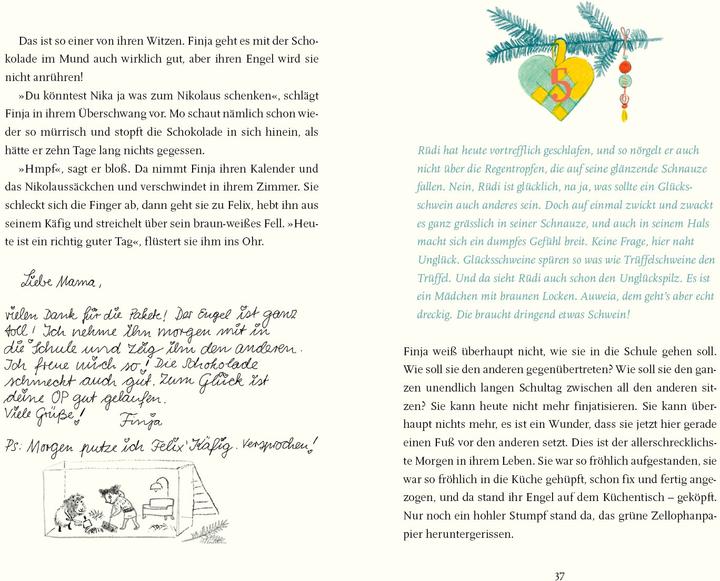 Das ist so einer von ihren Witzen. Finja geht es mit der Scho-
kolade im Mund auch wirklich gut, aber ihren Engel wird sie
nicht anrühren!
»Du könntest Nika ja was zum Nikolaus schenken«, schlägt
Finja in ihrem Überschwang vor. Mo schaut nämlich schon wie-
der so mürrisch und stopft die Schokolade in sich hinein, als
hätte er zehn Tage lang nichts gegessen.
»Hmpf«, sagt er bloß. Da nimmt Finja ihren Kalender und
das Nikolaussäckchen und verschwindet in ihrem Zimmer. Sie
schleckt sich die Finger ab, dann geht sie zu Felix, hebt ihn aus
seinem Käfig und streichelt über sein braun-weißes Fell. »Heu-
te ist ein richtig guter Tag«, flüstert sie ihm ins Ohr.
Liebe Mama,
vielen Dank für die Pakete! Der Engel ist ganz
toll! Ich nehme ihn morgen mit in
die Schule und zeig ihn den anderen.
Ich freue mich so! Die Schokolade
schmeckt auch gut. Zum Glück ist
deine OP gut gelaufen.
Viele Grüße! Finja
Ps: Morgen putze ich Felix' Käfig. Versprochen!
5
Rüdi hat heute vortrefflich geschlafen, und so nörgelt er auch
nicht über die Regentropfen, die auf seine glänzende Schnauze
fallen. Nein, Rüdi ist glücklich, na ja, was sollte ein Glücks-
schwein auch anderes sein. Doch auf einmal zwickt und zwackt
es ganz grässlich in seiner Schnauze, und auch in seinem Hals
macht sich ein dumpfes Gefühl breit. Keine Frage, hier naht
Unglück. Glücksschweine spüren so was wie Trüffelschweine den
Trüffel. Und da sieht Rüdi auch schon den Unglückspilz. Es ist
ein Mädchen mit braunen Locken. Auweia, dem geht's aber echt
dreckig. Die braucht dringend etwas Schwein!
Finja weiß überhaupt nicht, wie sie in die Schule gehen soll.
Wie soll sie den anderen gegenübertreten? Wie soll sie den gan-
zen unendlich langen Schultag zwischen all den anderen sit-
zen? Sie kann heute nicht mehr finjatisieren. Sie kann über-
haupt nichts mehr, es ist ein Wunder, dass sie jetzt hier gerade
einen Fuß vor den anderen setzt. Dies ist der allerschrecklichs-
te Morgen in ihrem Leben. Sie war so fröhlich aufgestanden, sie
war so fröhlich in die Küche gehüpft, schon fix und fertig ange-
zogen, und da stand ihr Engel auf dem Küchentisch – geköpft.
Nur noch ein hohler Stumpf stand da, das grüne Zellophanpa-
pier heruntergerissen.
37